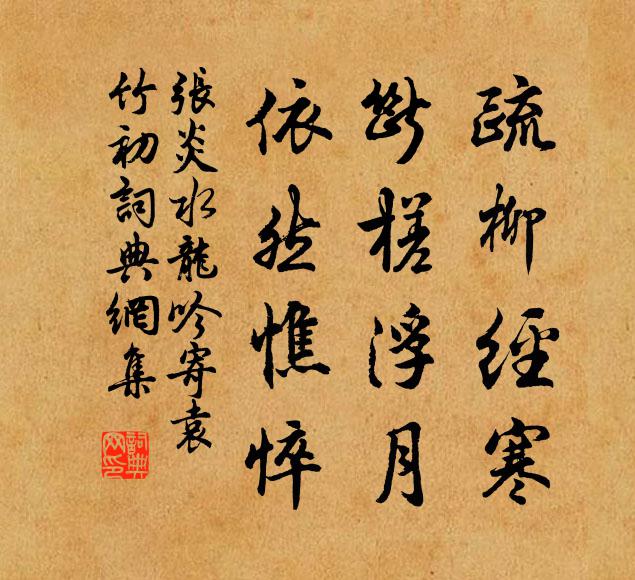 疏柳經寒
斷槎浮月
依然憔悴
張炎水龍吟寄袁
竹初詞典網集
詞典
网印